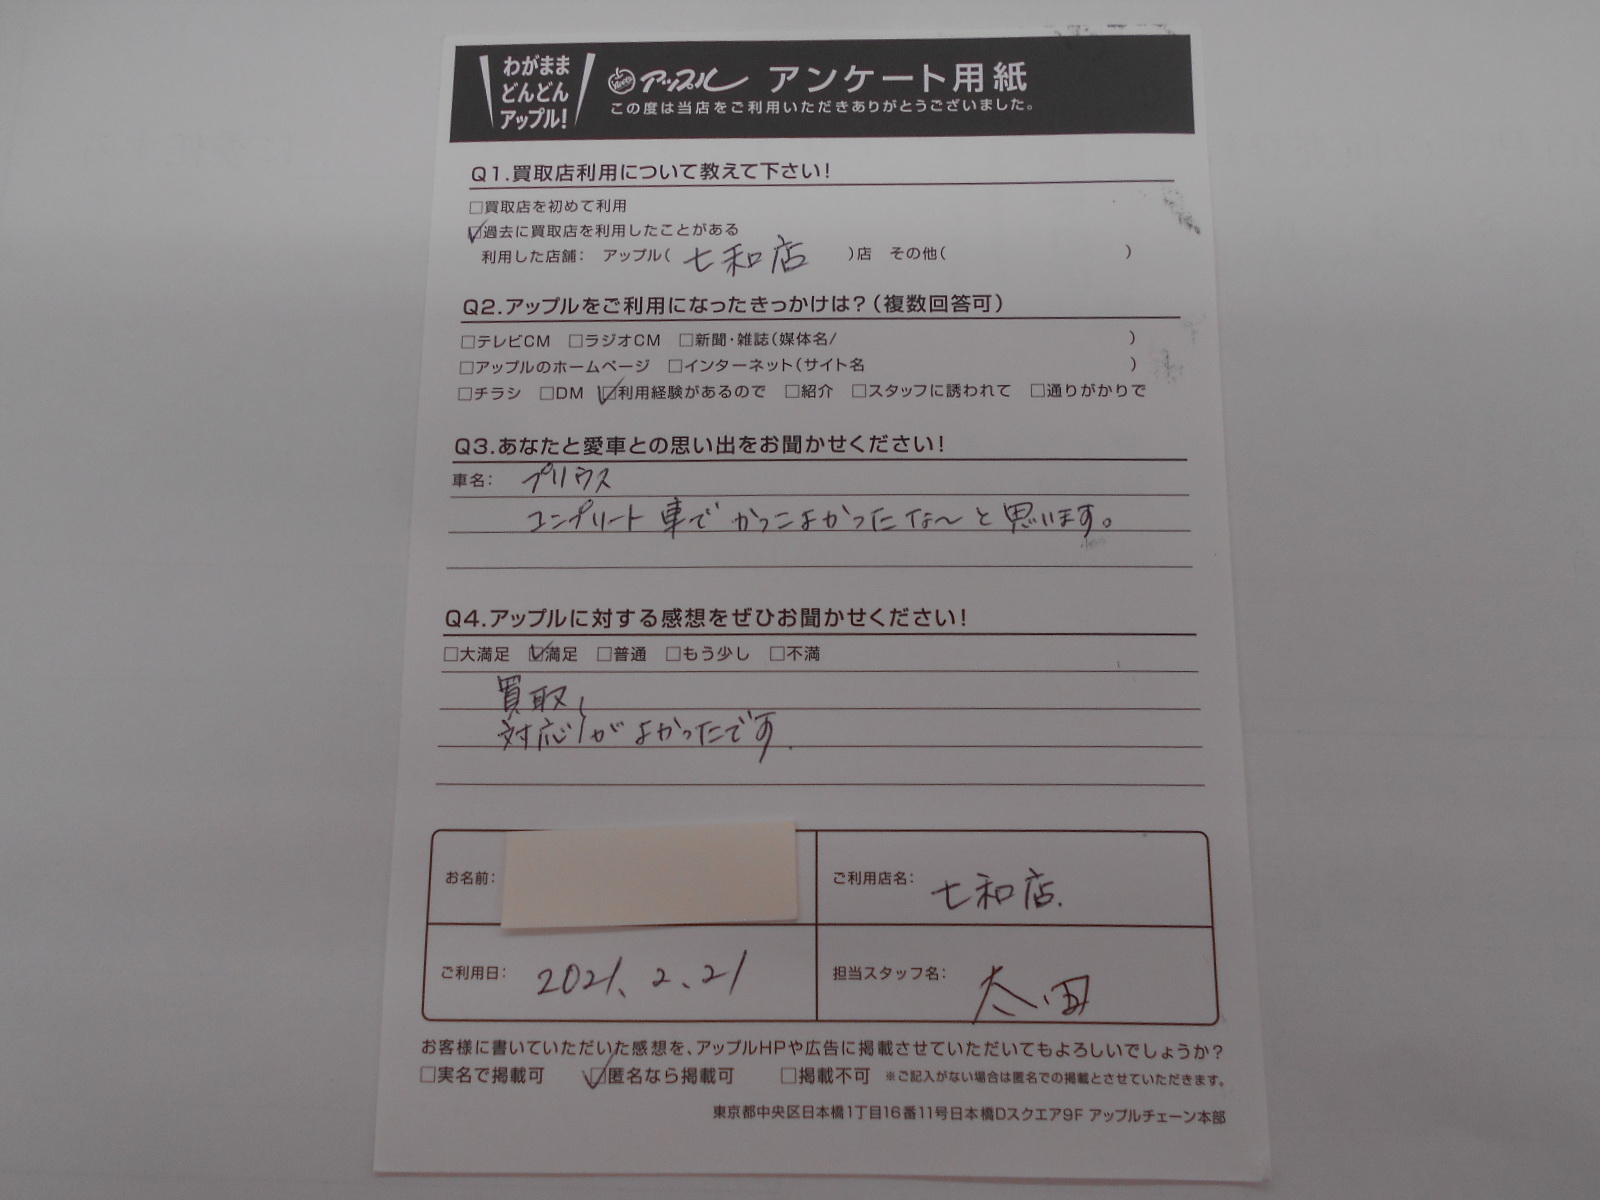 わがまま
どんどん
アップル!
アップル アンケート用紙
この度は当店をご利用いただきありがとうございました。
Q1.買取店利用について教えて下さい!
□買取店を初めて利用
☑過去に買取店を利用したことがある
利用した店舗: アップル( 七和店 )店 その他( )
Q2.アップルをご利用になったきっかけは?(複数回答可)
□テレビCM □ラジオCM □新聞・雑誌(媒体名/ )
□アップルのホームページ □インターネット(サイト名 )
□チラシ □DM ☑利用経験があるので □紹介 □スタッフに誘われて □通りがかりで
Q3.あなたと愛車との思い出をお聞かせください!
車名: プリウス
コンプリート車でかっこよかったな〜と思います。
Q4.アップルに対する感想をぜひお聞かせください!
□大満足 ☑満足 □普通 □もう少し □不満
買取、
対応がよかったです.
お名前:
ご利用店名: 七和店.
ご利用日: 2021、2、21
担当スタッフ名: 太田
お客様に書いていただいた感想を、アップルHPや広告に掲載させていただいてもよろしいでしょうか?
□実名で掲載可 ☑匿名なら掲載可 □掲載不可 ※ご記入がない場合は匿名での掲載とさせていただきます。
東京都中央区日本橋1丁目16番11号日本橋Dスクエア9F アップルチェーン本部